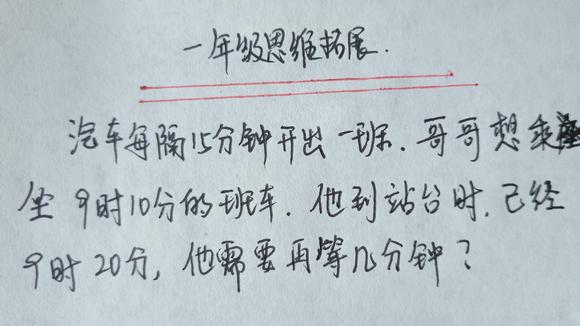 一年级思维拓展.
汽车每隔15分钟开出一班.哥哥想乘
坐9时10分的班车.他到站台时.已经
9时20分,他需要再等几分钟?